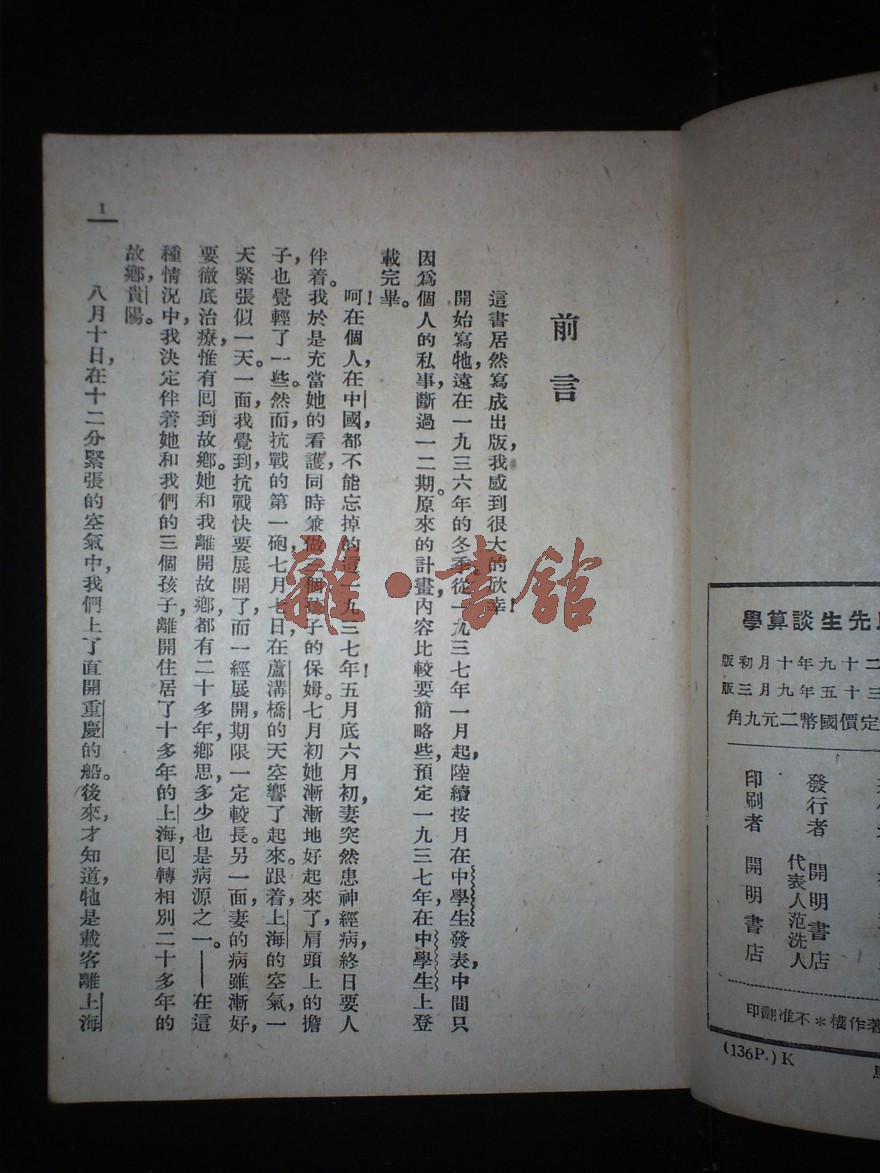 先生談算學
二十九年十月初版
三十五年九月三版
定價國幣二元九角
發行者 開明書店
代表人范洗人
印刷者 開明書店
著作權＊不准翻印
(136P.)K
前言
這書居然寫成出版，我感到很大的欣幸！
開始寫牠，遠在一九三六年的冬季。從一九三七年一月起，陸續按月在中學生發表，中間只
因爲個人的私事，斷過一二期。原來的計畫，內容比較要簡略些，預定一九三七年，在中學生上登
載完畢。
呵！在個人，在中國，都不能忘掉的這一九三七年！五月底六月初，妻突然患神經病，終日要人
伴着。我於是充當她的看護，同時兼做三個孩子的保姆。七月初她漸漸地好起來了，肩頭上的擔
子，也覺輕了一些。然而，抗戰的第一砲，七月七日在蘆溝橋的天空響了起來。跟着，上海的空氣，一
天緊張似一天。一面，我覺到，抗戰快要展開了，而一經展開，期限一定較長。另一面，妻的病雖漸好，
要徹底治療，惟有囘到故鄉。她和我離開故鄉，都有二十多年，鄉思，多少也是病源之一。——在這
種情況中，我決定伴着她和我們的三個孩子，離開住居了十多年的上海，囘轉相別二十多年的
故鄉，貴陽。
八月十日，在十二分緊張的空氣中，我們上了直開重慶的船。後來，才知道，牠是載客離上海
1
雜·書館